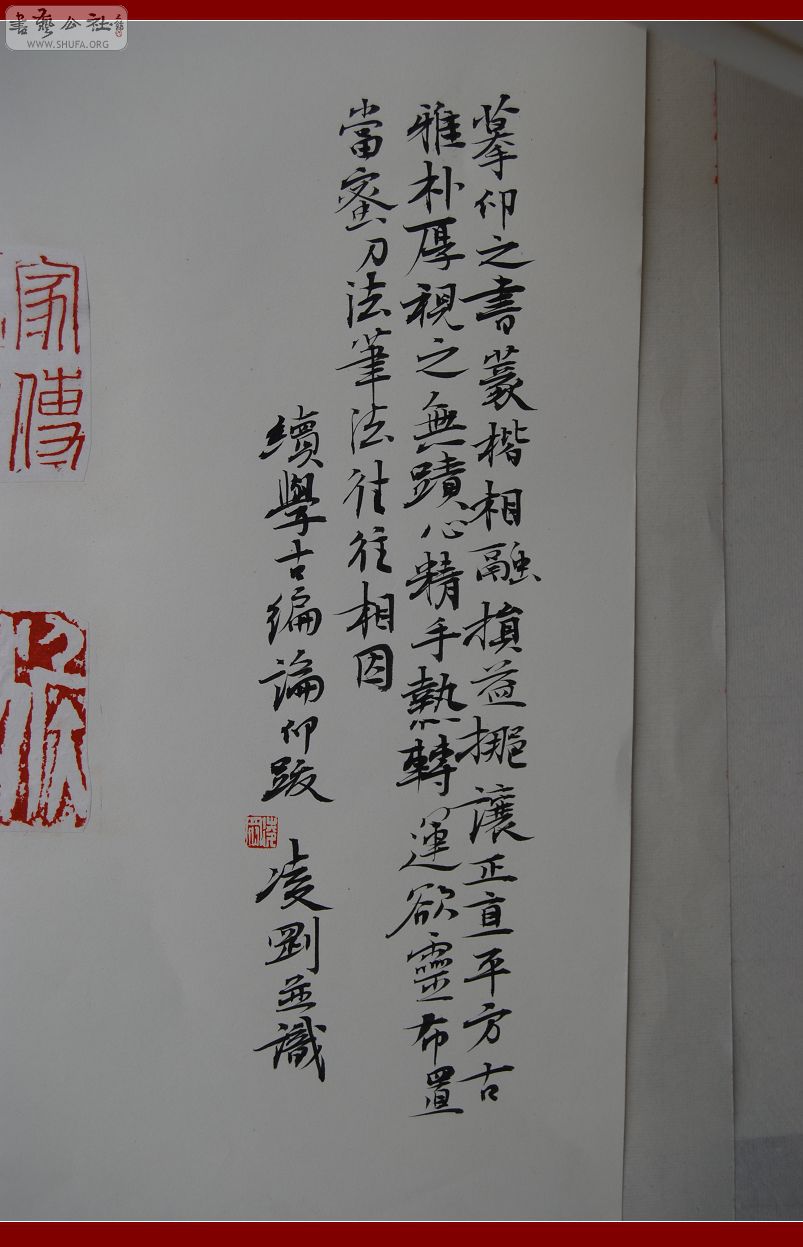 書藝公社
WWW.SHUFA.ORG
摹仰之書篆楷相融損益挪讓正直平方古
雅朴厚視之無蹟心精手熟轉運欲靈布置
當密刀法筆法往往相因
續學古編論仰跋
凌剛並識
家傳